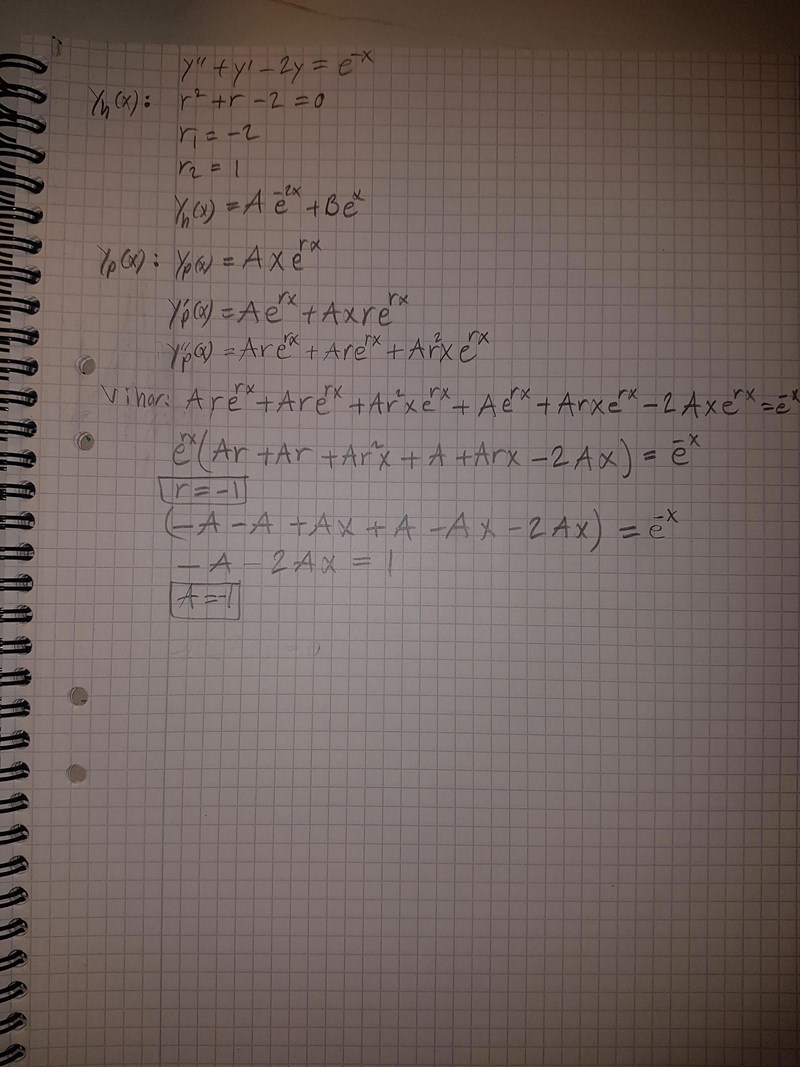 y'' + y' - 2y = e^{-x}
y_h(x): r² + r - 2 = 0
r₁ = -2
r₂ = 1
y_h(x) = A e^{-2x} + B e^{x}
y_p(x): y_p(x) = A x e^{rx}
y'_p(x) = A e^{rx} + A x r e^{rx}
y''_p(x) = A r e^{rx} + A r e^{rx} + A r² x e^{rx}
Vi har: A r e^{rx} + A r e^{rx} + A r² x e^{rx} + A e^{rx} + A r x e^{rx} - 2 A x e^{rx} = e^{-x}
e^{rx} (Ar + Ar + Ar²x + A + Arx - 2Ax) = e^{-x}
r = -1
(-A - A + Ax + A - Ax - 2Ax) = e^{-x}
-A - 2Ax = 1
A = -1